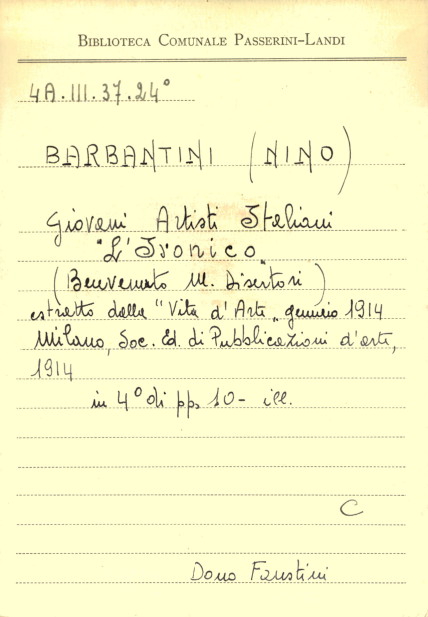 BIBLIOTECA COMUNALE PASSERINI-LANDI
4A.III.37.24°
BARBANTINI (NINO)
Giovani Artisti Italiani
"L'Ironico"
(Benvenuto M. Disertori)
estratto dalla "Vita d'Arte" gennaio 1914
Milano, Soc. Ed. di Pubblicazioni d'arte,
1914
in 4° di pp. 10 - ill.
C
Dono Faustini